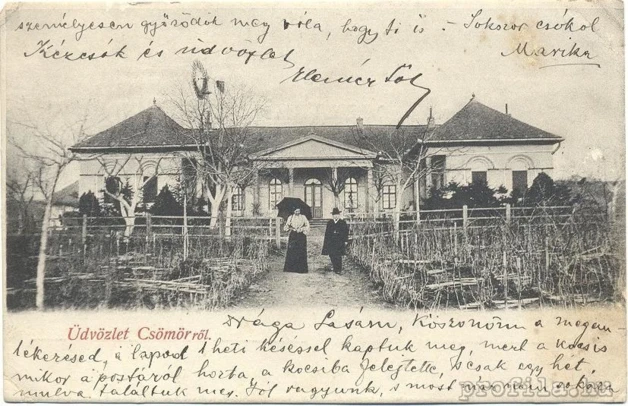 személyesen győződök meg róla, hogy ti is – Sokszor csókol
Kézcsók és üdvözlet
Marika
Üdvözlet Csömörről.
Drága Lasám, Köszönöm a megem-
lékezésed, a lapod 1 heti késéssel kaptuk meg, mert a kocsis
mikor a postáról hozta a kocsiba felejtette, s csak egy hét
mulva találtuk meg. Jól vagyunk, s most már
profila.hu